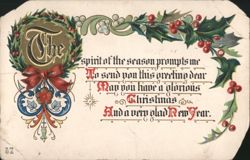 The spirit of the season prompts me
To send you this greeting dear
May you have a glorious
Christmas
And a very glad New Year.